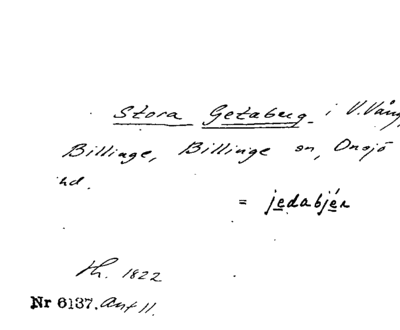 Stora Getaberg i V. Vång,
Billinge, Billinge sn, Onsjö
hd.
= jedabjér
Th. 1822
Nr 6137. Ant 11.